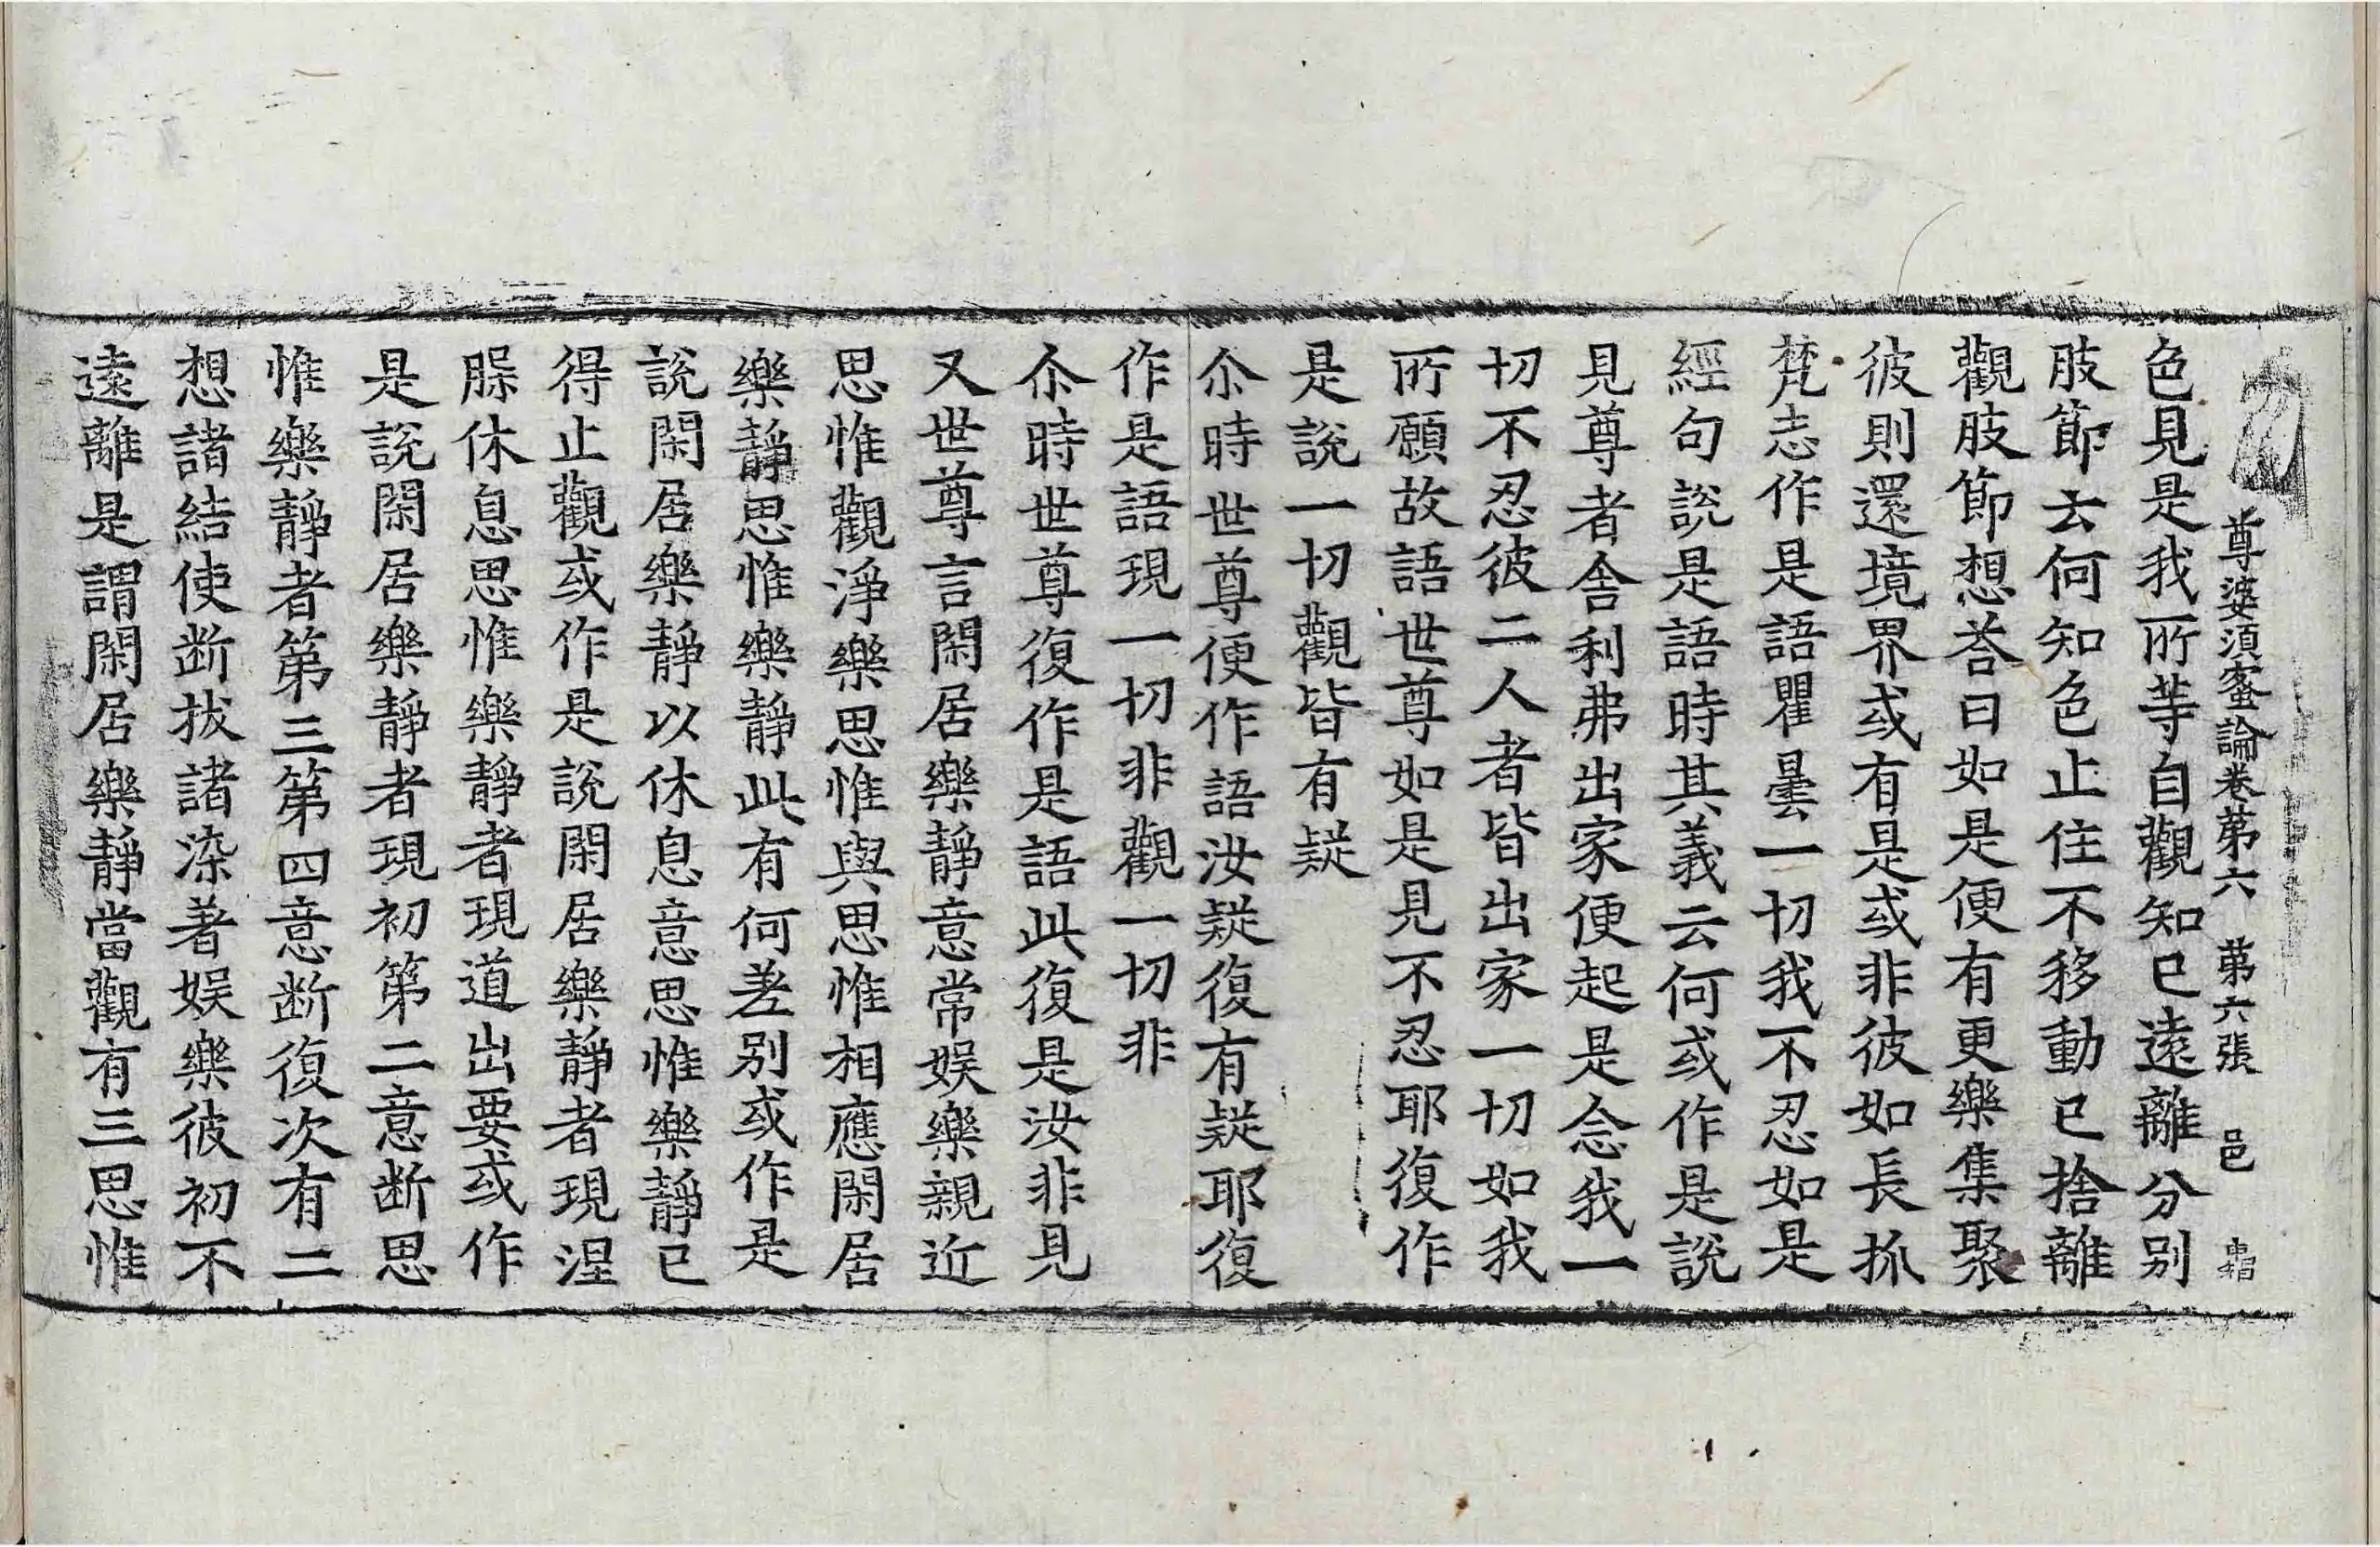 尊婆須蜜論卷第六 第六張 邑
色見是我所等自觀知已遠離分別
肢節去何知色止住不移動已捨離
觀肢節想荅曰如是便有更樂集聚
彼則還境界或有是或非彼如長抓
梵志作是語瞿曇一切我不忍如是
經句說是語時其義云何或作是說
見尊者舍利弗出家便起是念我一
切不忍彼二人者皆出家一切如我
所願故語世尊如是見不忍耶復作
是說一切觀皆有疑
尒時世尊便作語汝疑復有疑耶復
作是語現一切非觀一切非
尒時世尊復作是語此復是汝非見
又世尊言閑居樂靜意常娛樂親近
思惟觀淨樂思惟與思惟相應閑居
樂靜思惟樂靜此有何差別或作是
說閑居樂靜以休息意思惟樂靜已
得止觀或作是說閑居樂靜者現涅
縣休息思惟樂靜者現道出要或作
是說閑居樂靜者現初第二意断思
惟樂靜者第三第四意断復次有二
想諸結使断拔諸染著娛樂彼初不
遠離是謂閑居樂靜當觀有三思惟